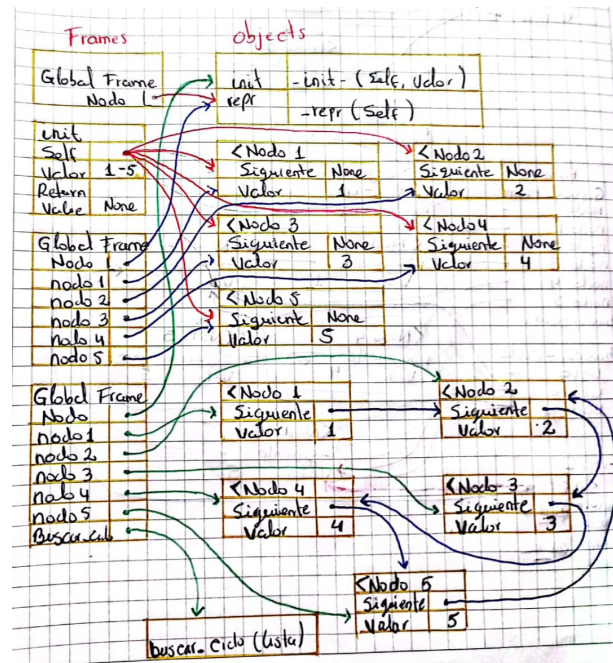 Frames objects
Global Frame
Nodo
init -init-(Self, valor)
repr -repr(Self)
init
Self
Valor 1-5
Return
Value None
<Nodo 1
Siguiente None
Valor 1
<Nodo2
Siguiente None
Valor 2
<Nodo 3
Siguiente None
Valor 3
<Nodo4
Siguiente None
Valor 4
<Nodo 5
Siguiente None
Valor 5
Global Frame
Nodo
nodo 1
nodo 2
nodo 3
nodo 4
nodo 5
Global Frame
Nodo
nodo 1
nodo 2
nodo 3
nodo 4
nodo 5
<Nodo 1
Siguiente
Valor 1
<Nodo 2
Siguiente
Valor 2
<Nodo 4
Siguiente
Valor 4
<Nodo 3
Siguiente
Valor 3
<Nodo 5
Siguiente
Valor 5
buscar_ciclo (lista)